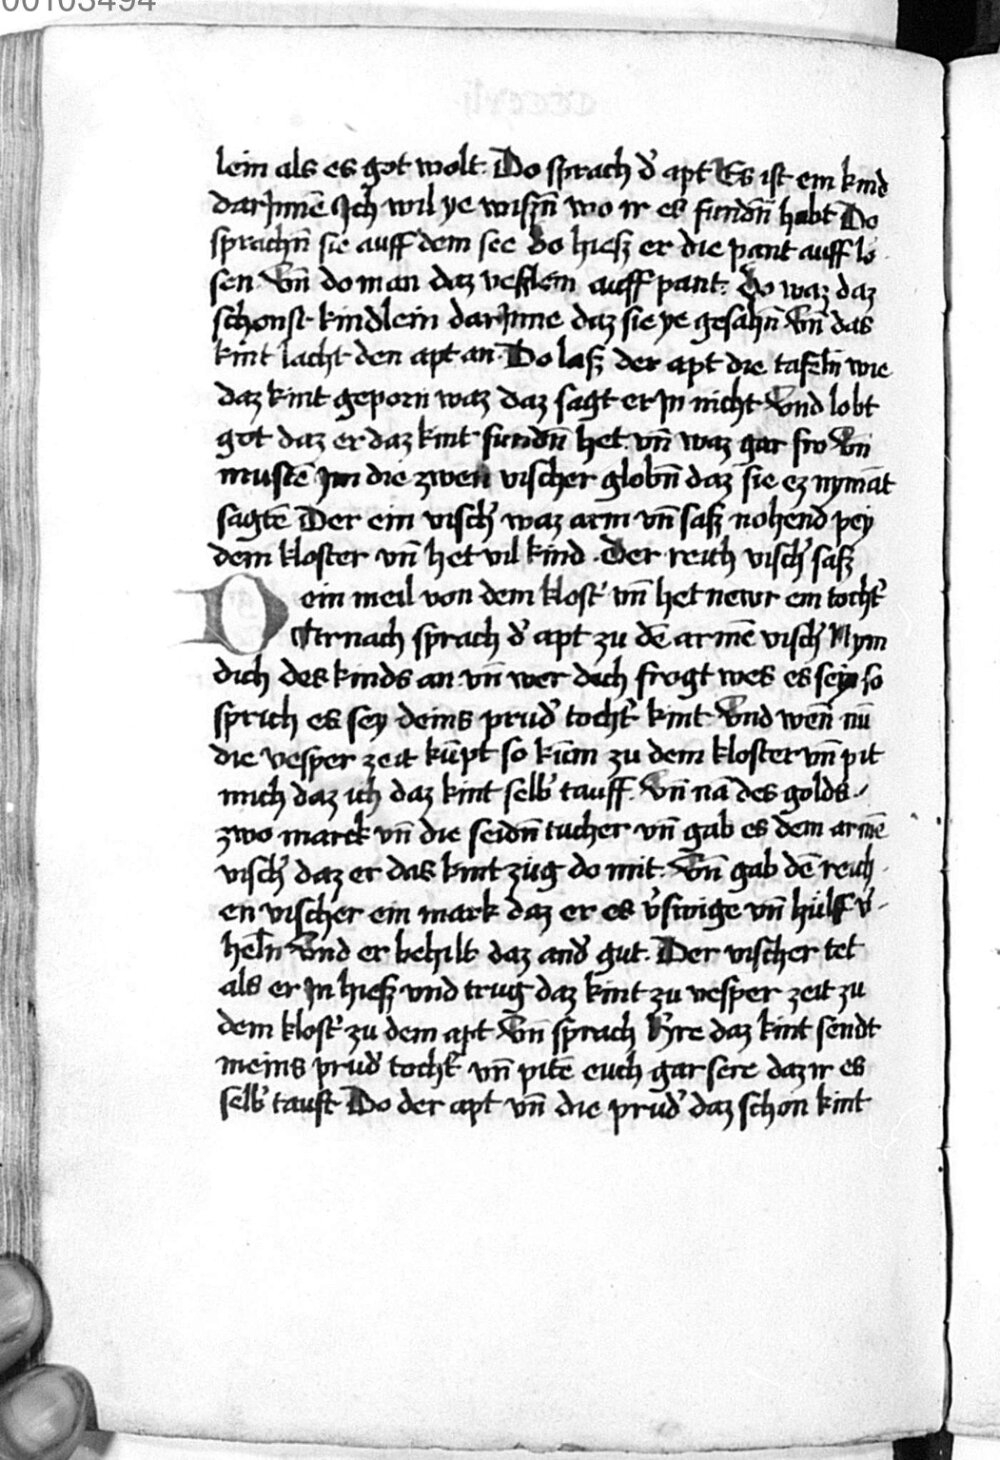 00103494
lein als es got wolt. Do sprach d' apt Es ist ein kind
darJnnē Jch wil ye wiszn̄ wo ir es fundn̄ habt Do
sprachn̄ sie auff dem see do hiesz er die pant auff lo
sen. Vn̄ do man daz veszlein auff pant. do waz daz
schonst kindlein darJnne daz sie ye gesahn̄ Vn̄ das
kint lacht den apt an. Do lasz der apt die tafeln̄ wie
daz kint geporn waz daz sagt er Jn nicht Vnd lobt
got daz er daz kint fundn̄ het. vn̄ waz gar fro Vn̄
mustē Jm die zwen vischer globn̄ daz sie ez nymāt
sagtē Der ein visch' waz arm vn̄ sasz nohend pey
dem kloster vn̄ het vil kind. Der reich visch' sasz
ein meil von dem klost' vn̄ het newr ein tocht'
Dernach sprach d' apt zu dē armē visch' Nym
dich des kinds an vn̄ wer dich fragt wes es sey so
sprich es sey deins prud' tocht' kint Vnd wen̄ nū
die vesper zeit kūpt so kūm zu dem kloster vn̄ pit
mich daz ich daz kint selb' tauff. Vn̄ nā des golds
zwo marck vn̄ die seidn̄ tucher vn̄ gab es dem armē
visch' daz er das kint züg do mit. Vn̄ gab dē reich
en vischer ein mark daz er es v'swige vn̄ hülff v'-
heln̄ Vnd er behilt daz and' gut. Der vischer tet
als er Jn hiesz vnd trug daz kint zu vesper zeit zu
dem klost' zu dem apt Vn̄ sprach h're daz kint sendt
meins prud' tocht' vn̄ pitē euch gar sere daz ir es
selb' tauft Do der apt vn̄ die prud' daz schon kint